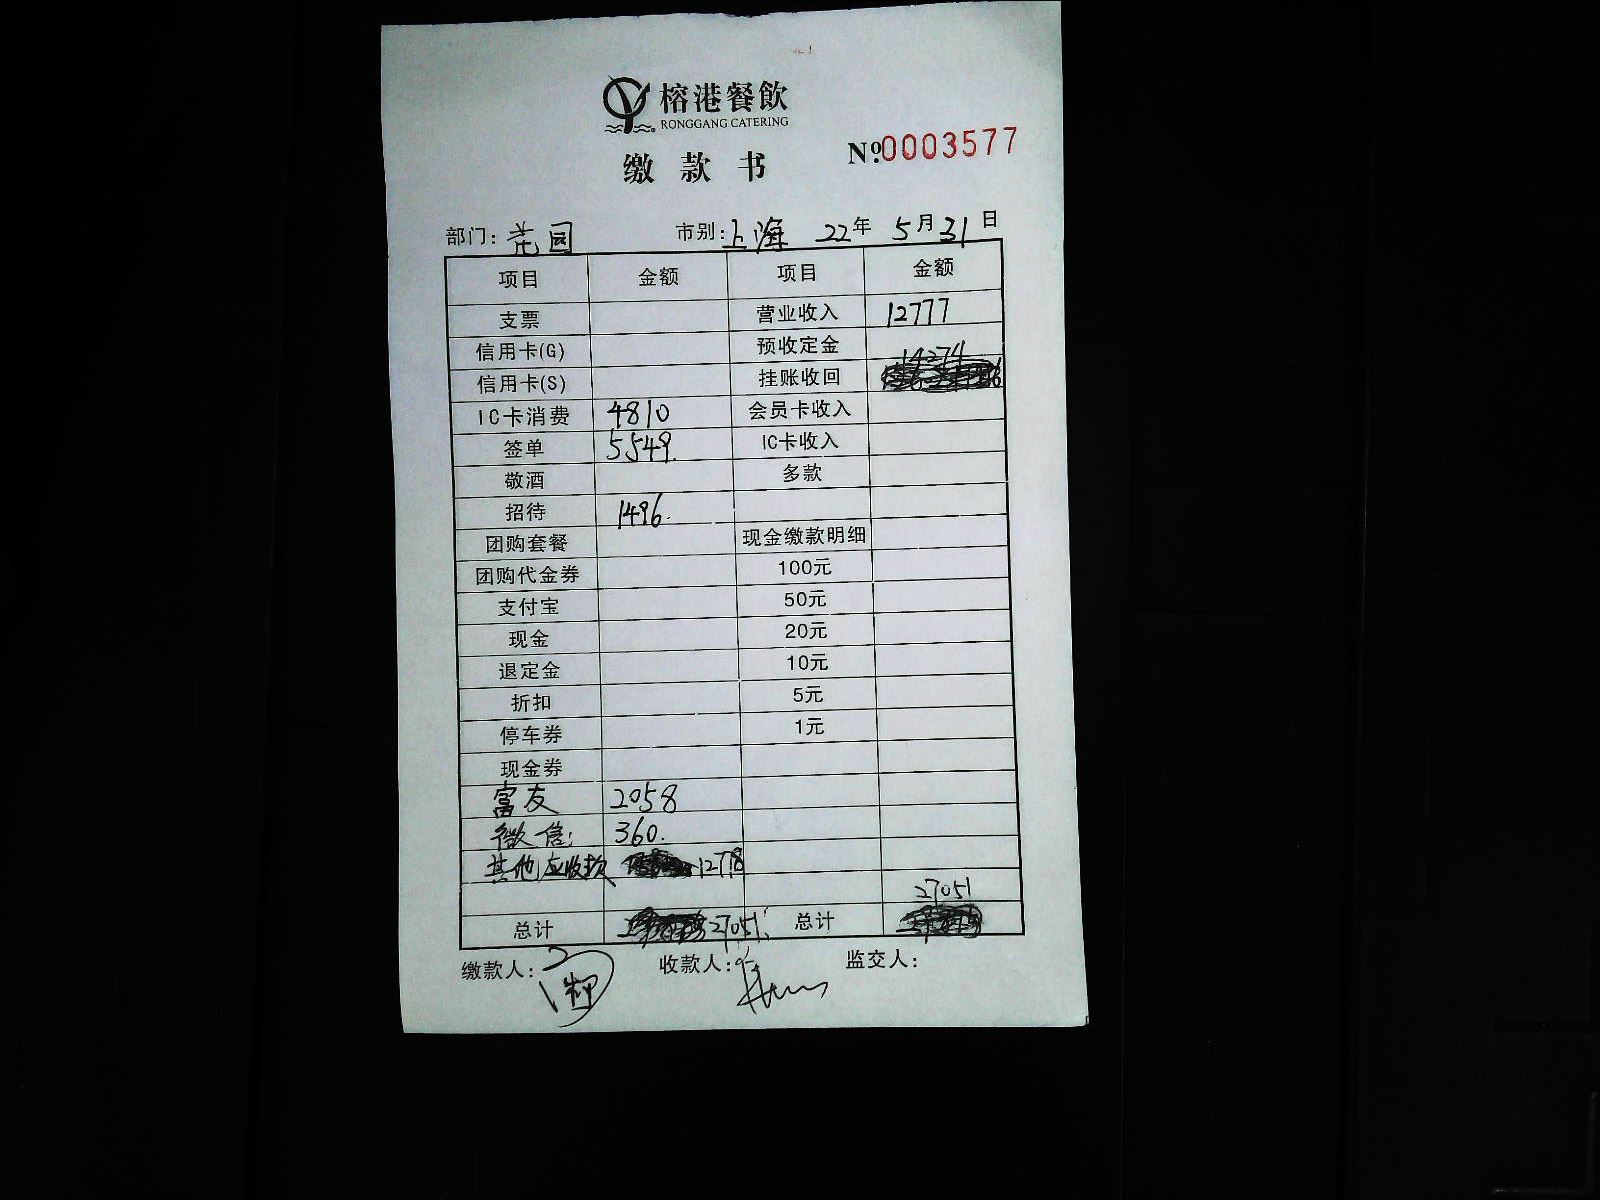 榕港餐飲
RONGGANG CATERING
缴款书
№0003577
部门: 荒园 市别: 上海 22年 5月31日
项目 金额 项目 金额
支票 营业收入 12777
信用卡(G) 预收定金
信用卡(S) 挂账收回 14274
IC卡消费 4810 会员卡收入
签单 5549. IC卡收入
敬酒 多款
招待 1496.
团购套餐 现金缴款明细
团购代金券 100元
支付宝 50元
现金 20元
退定金 10元
折扣 5元
停车券 1元
现金券
富友 2058
微信: 360.
其他应收款 12778
总计 27051 总计 27051
缴款人: 收款人: 监交人: